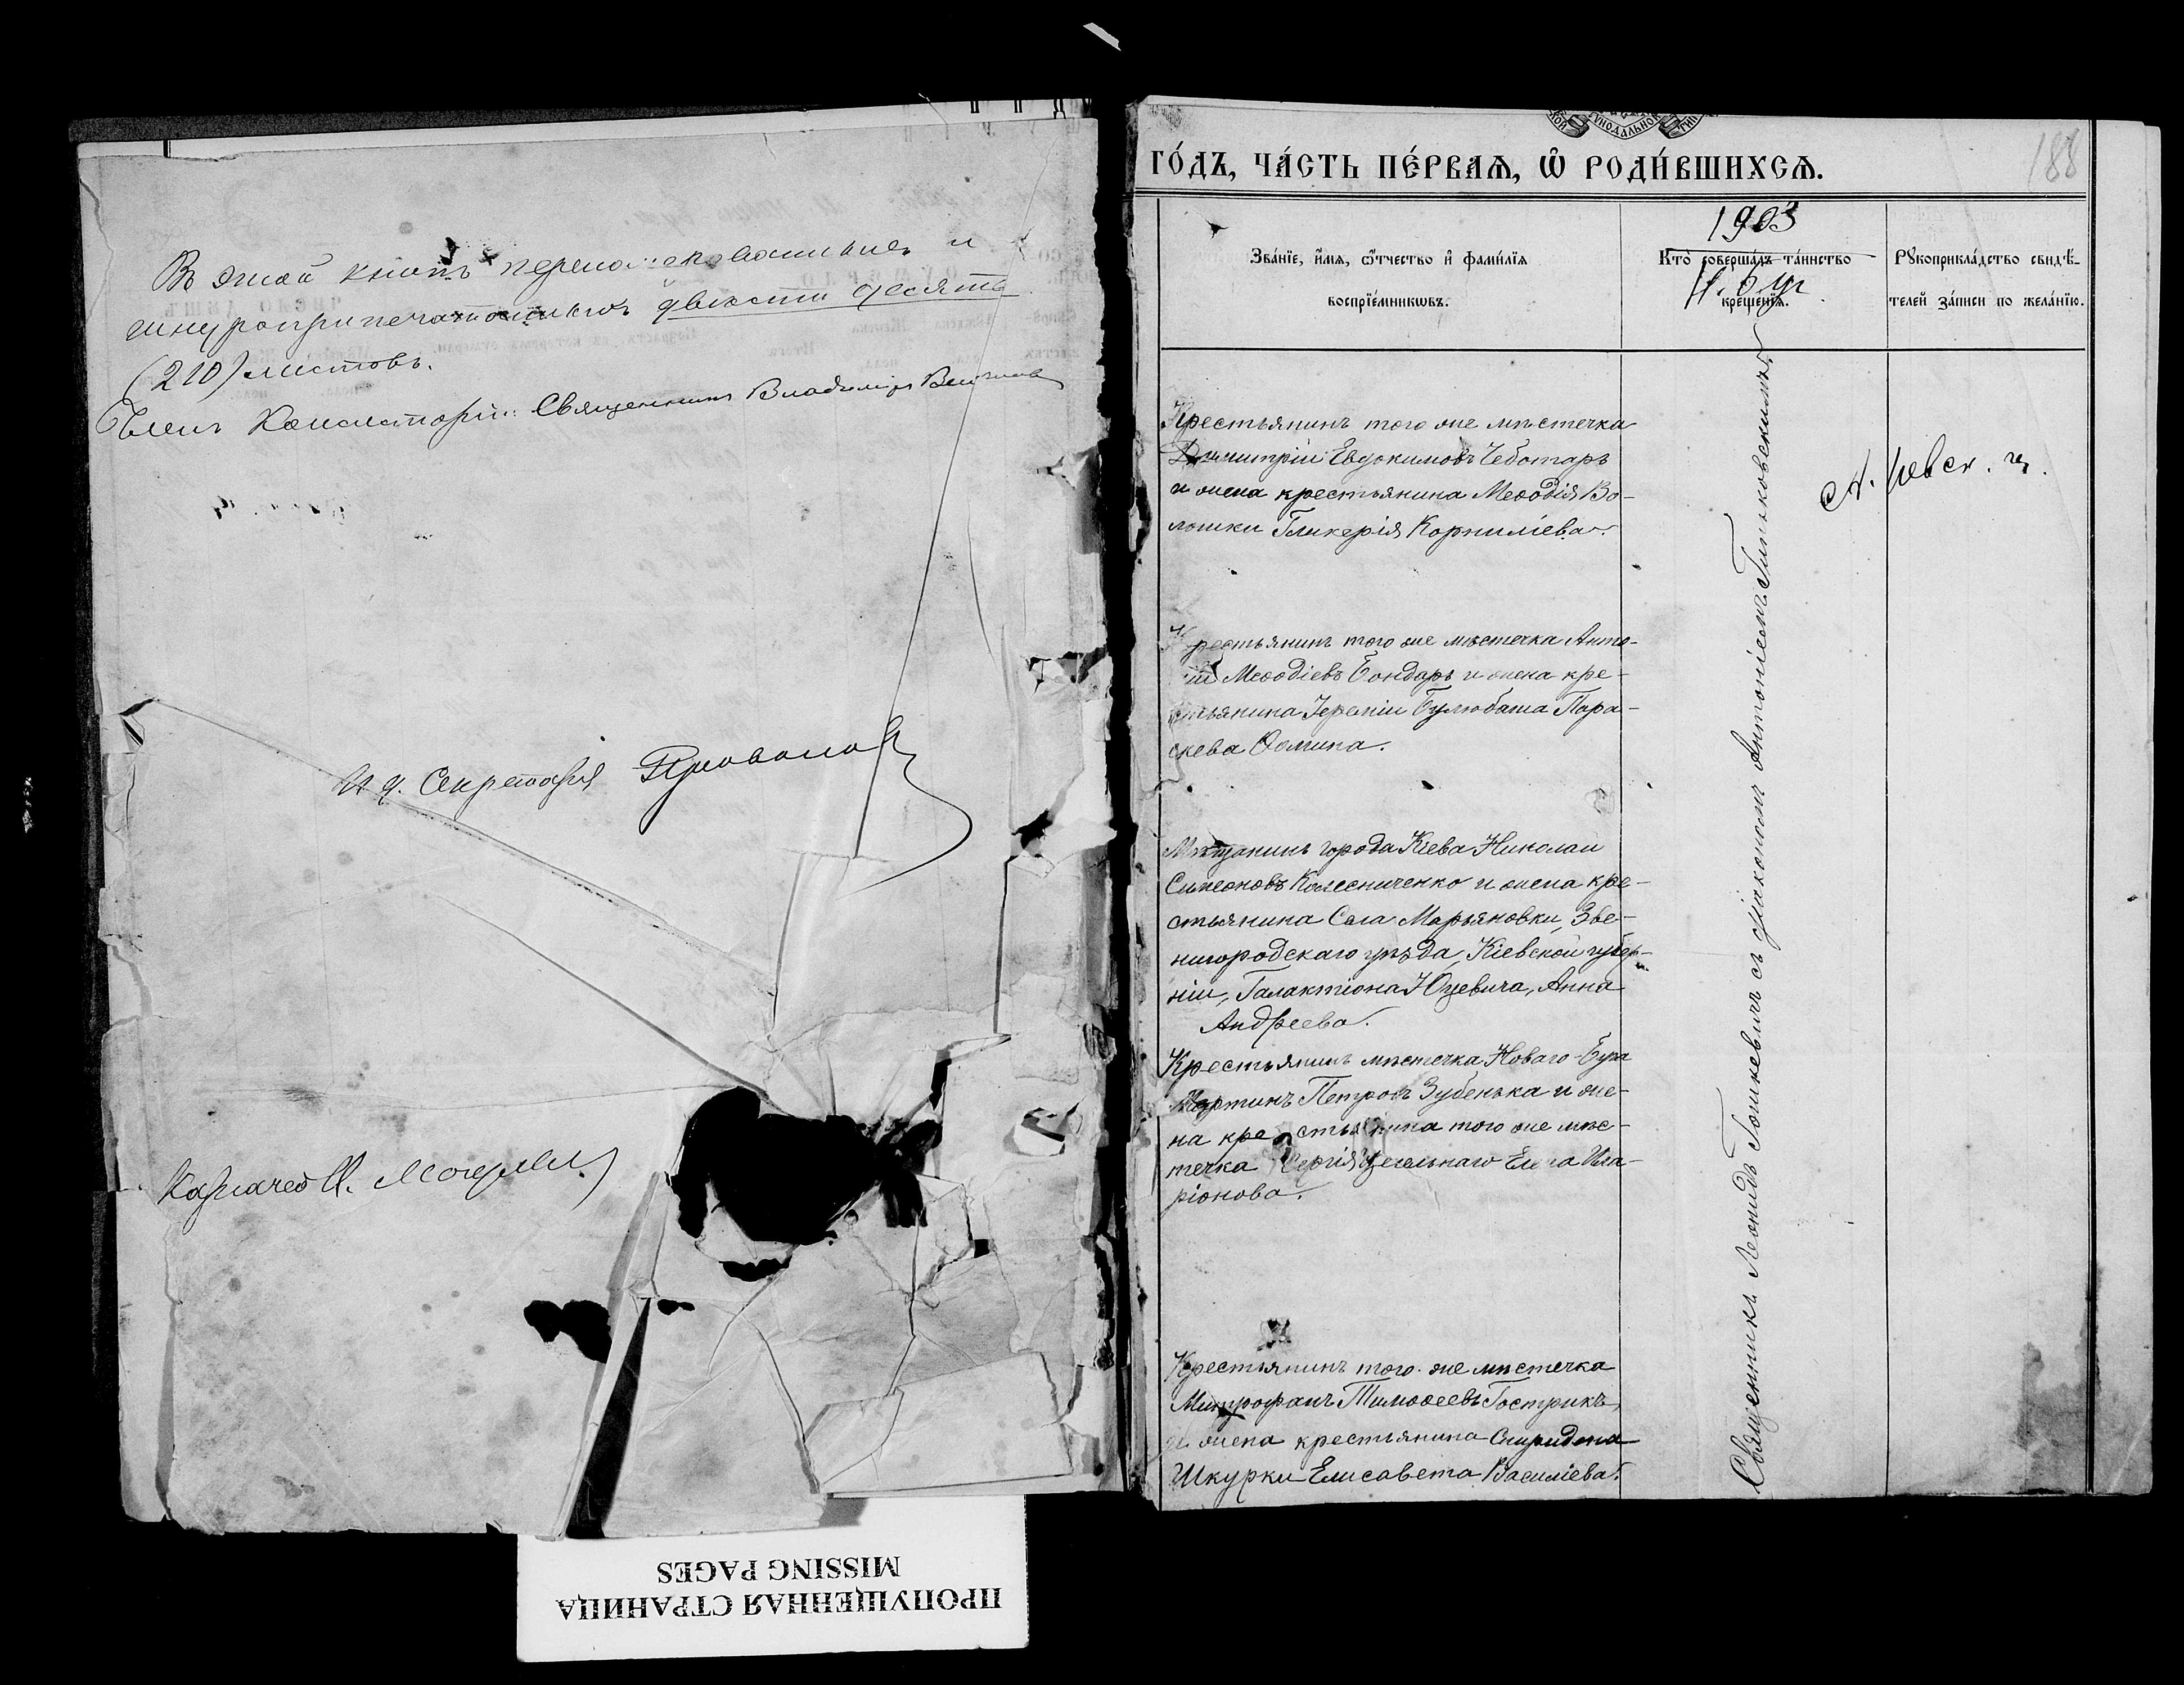 Въ этой книгѣ перенумерованныхъ и
шнуроприпечатанныхъ двѣсти десять
(210) листовъ.
Членъ Консисторіи: Священникъ Владиміръ
И. д. Секретаря
ПРОПУЩЕННАЯ СТРАНИЦА
MISSING PAGES
ГО́ДЪ, ЧА́СТЬ ПЕ́РВАѦ, Ѡ҆ РОДИ́ВШИХСѦ.
188
1903
Зва́нїе, и҆́мѧ, ѻ҆́тчество и҆ фами́лїѧ
воспрїе́мникѡвъ.
Кто̀ соверша́лъ та́инство
креще́нїѧ.
Н. Буг
Рꙋкоприкла́дство свидѣ́-
телей за́писи по жела́нїю.
Крестьянинъ того же мѣстечка
Димитрій Евдокимовъ Чеботарь
и жена крестьянина Меѳодія Во-
лошки Гликерія Корниліева.
Крестьянинъ того же мѣстечка Анто-
ній Меѳодіевъ Бондарь и жена кре-
стьянина Іереміи Булюбаша Пара-
скева Ѳомина.
Мѣщанинъ города Кіева Николай
Симеоновъ Колесниченко и жена кре-
стьянина Села Марьяновки, Зве-
нигородскаго уѣзда, Кіевской губер-
ніи, Галактіона Юцевича, Анна
Андреева.
Крестьянинъ мѣстечка Новаго-Буга
Мартинъ Петровъ Зубенька и же-
на крестьянина того же мѣс-
течка Сергія Елена Ила-
ріонова.
Крестьянинъ того же мѣстечка
Митрофанъ Тимоѳеевъ Гострикъ,
и жена крестьянина Спиридона
Шкурки Елисавета Василіева.
Священникъ Леонидъ съ діакономъ Антоніемъ